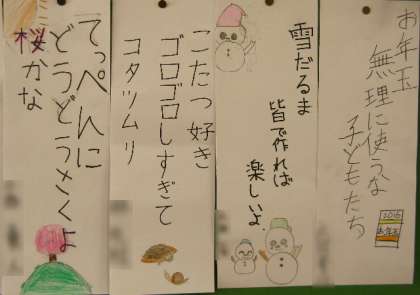 お年玉
無理に使うな
子どもたち
雪だるま
皆で作れば
楽しいよ
こたつ好き
ゴロゴロしすぎて
コタツムリ
てっぺんに
どうどうさくよ
桜かな